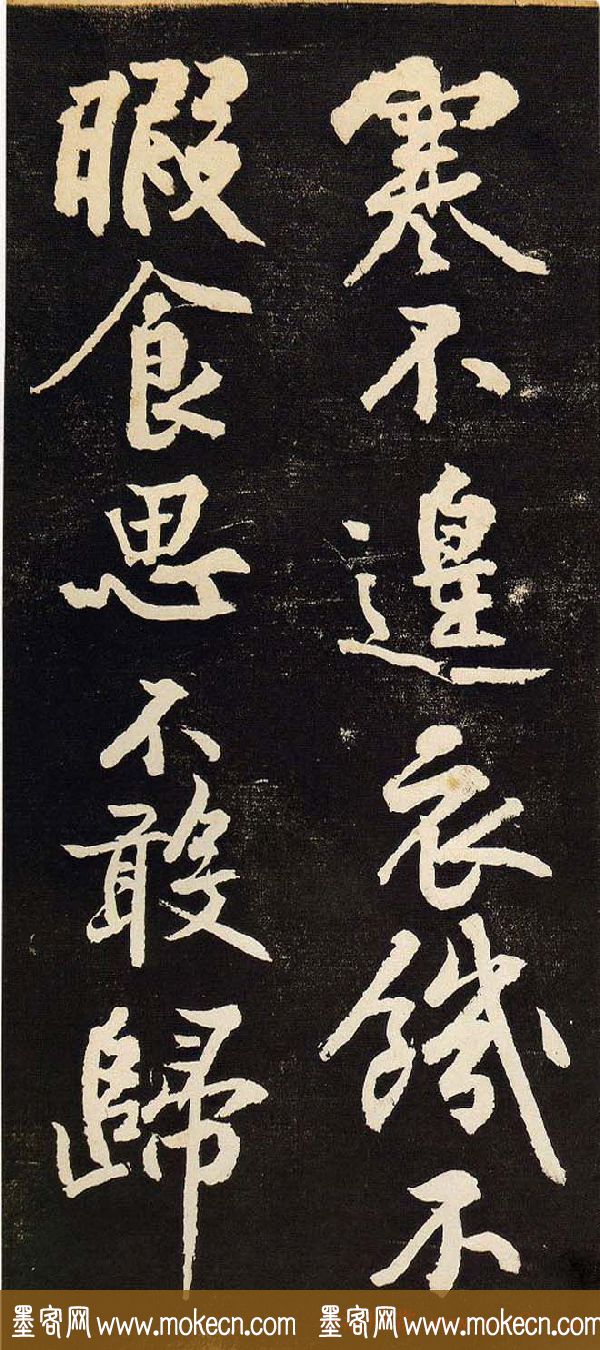 寒不遑衣饑不
暇食思不敢歸
墨客网 www.mokecn.com 墨客网 www.mokecn.com